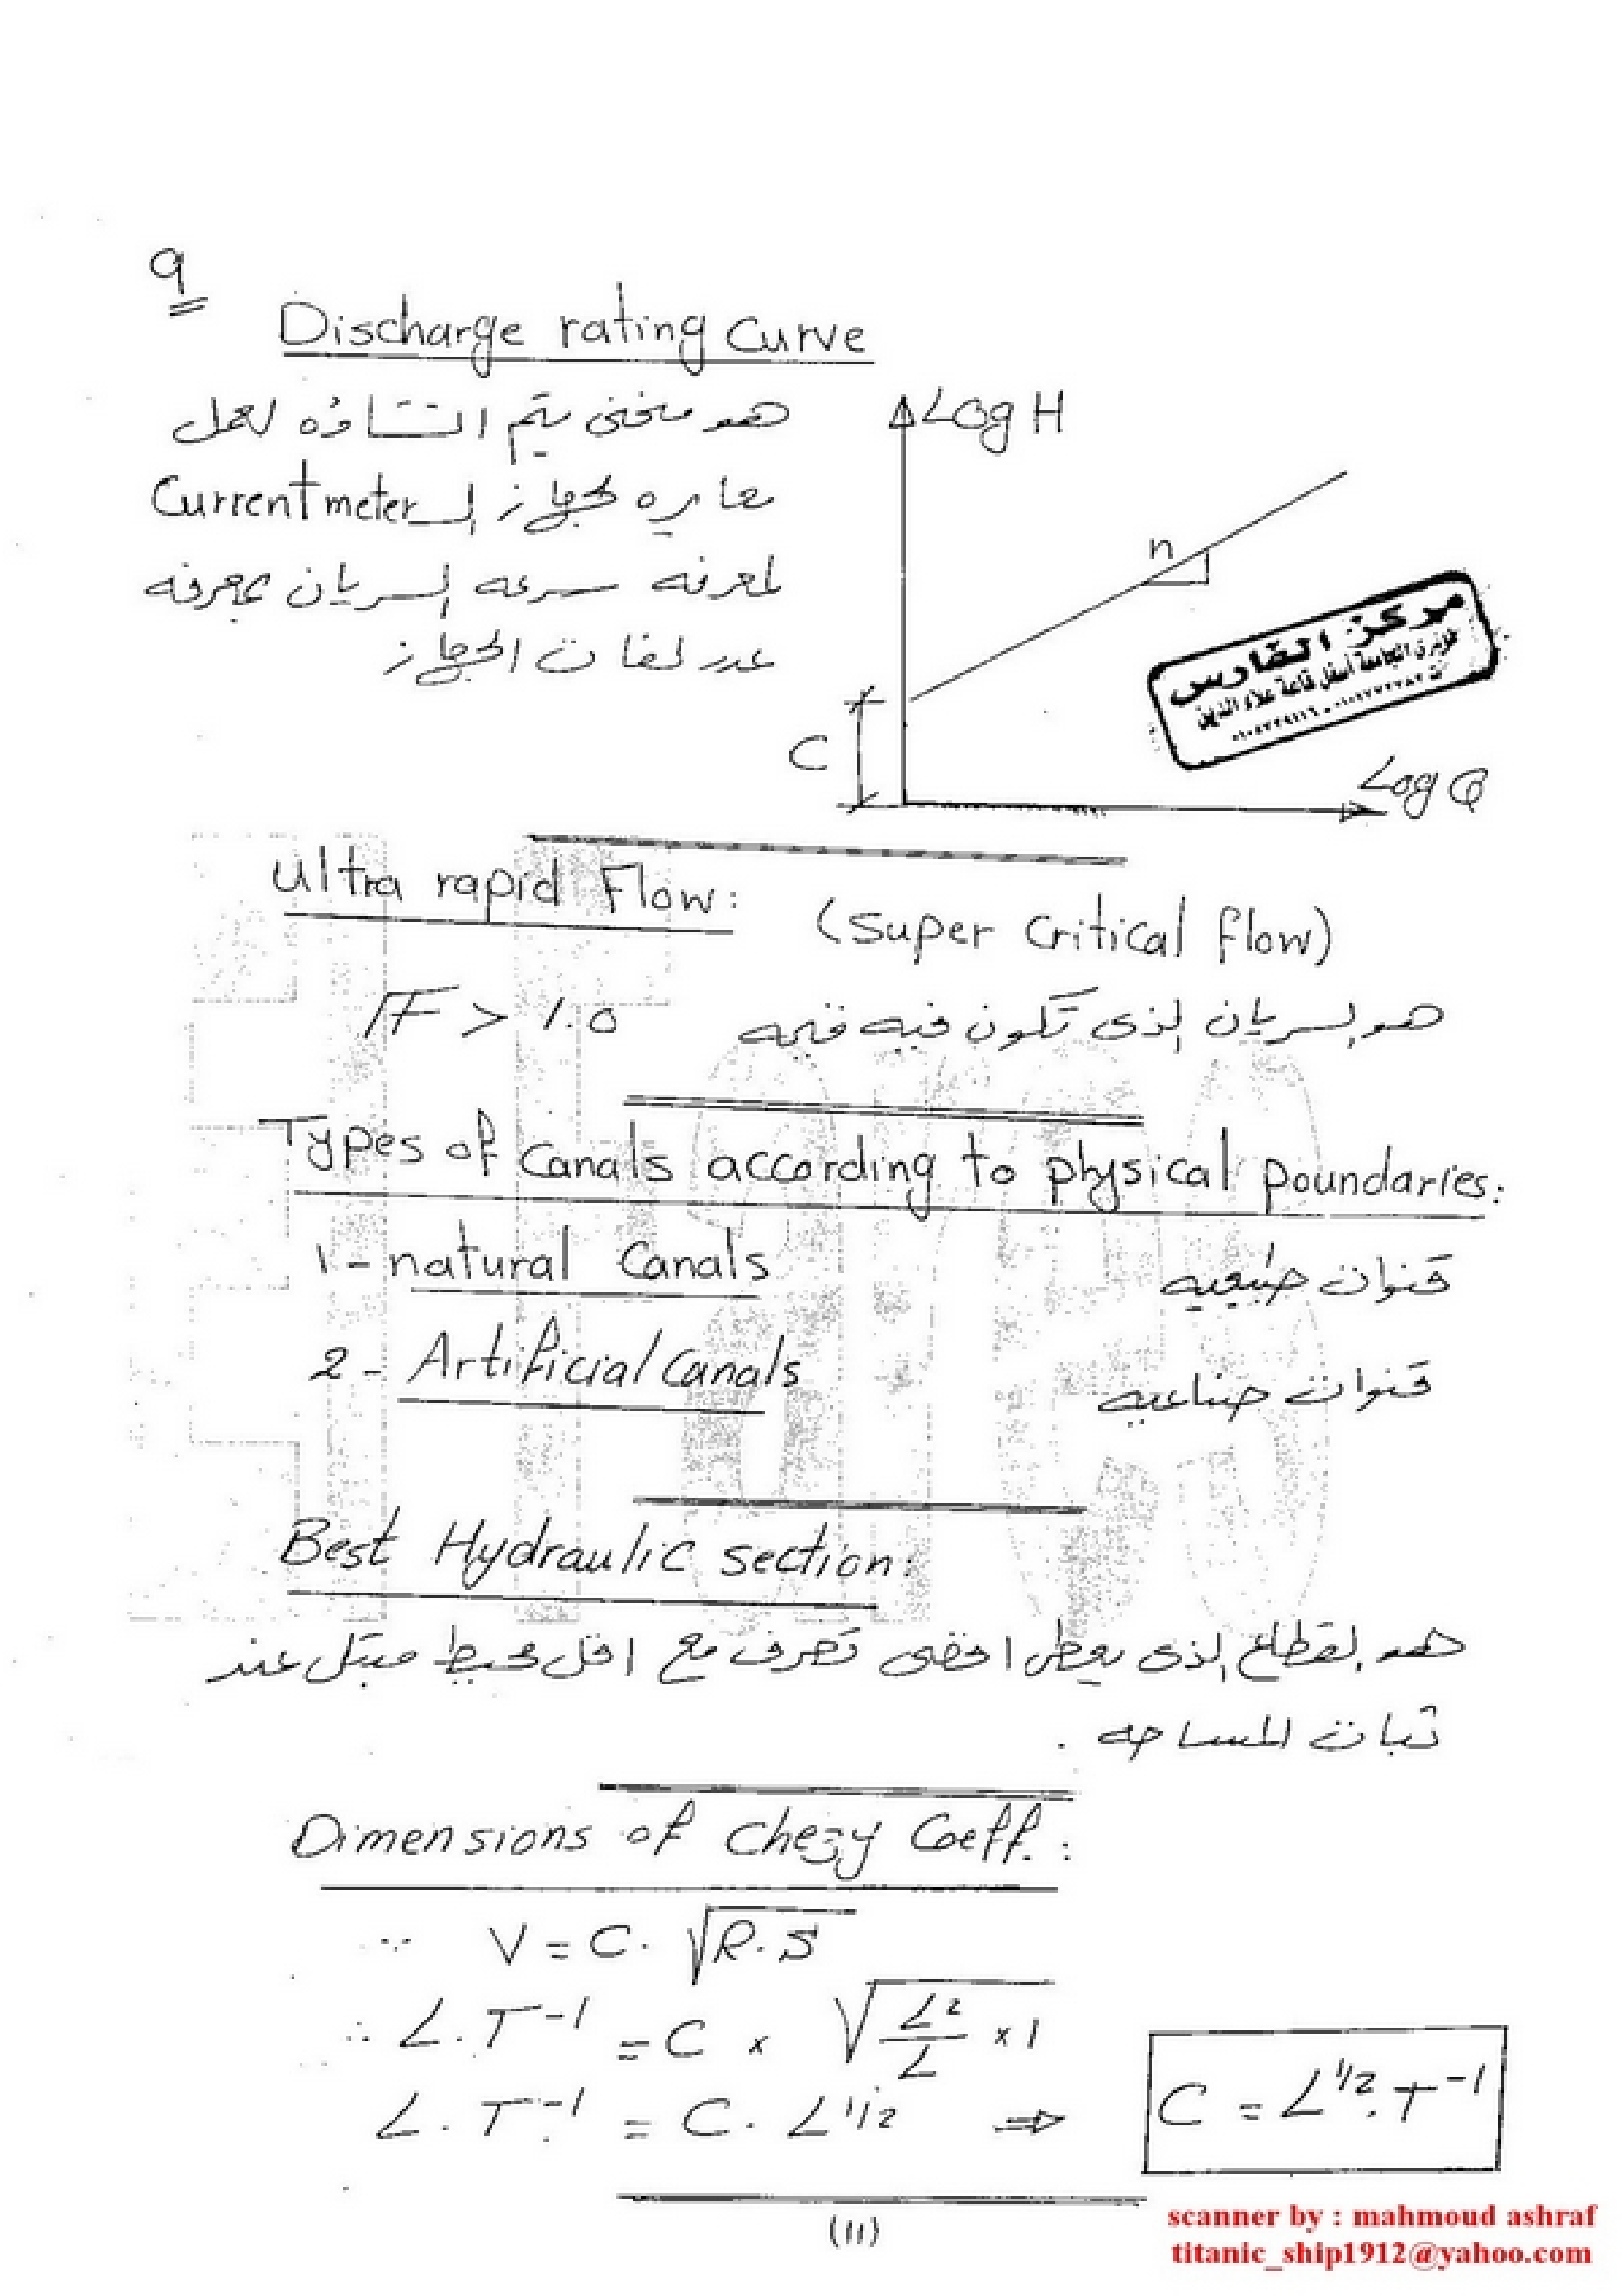 9
Discharge rating curve
هو منحنى يتم انشاؤه لعمل
معايره لجهاز الـ Current meter
لمعرفه سرعه السريان بمعرفه
عدد لفات الجهاز
Log H
n
C
Log Q
مركز الفارس
أسفل قاعة علاء الدين
Ultra rapid Flow:
(super critical flow)
هو السريان الذى تكون فيه قيمه
F > 1.0
Types of canals according to physical poundaries.
1 - natural Canals
قنوات طبيعيه
2 - Artificial Canals
قنوات صناعيه
Best Hydraulic section:
هو القطاع الذى يعطى اقصى تصرف مع اقل محيط مبتل عند
ثبات المساحه .
Dimensions of chezy Coeff. :
∵ V = C . √R.S
∴ L . T⁻¹ = C × √L²/L × 1
L . T⁻¹ = C . L^1/2 ⇒
C = L^1/2 . T⁻¹
(11)
scanner by : mahmoud ashraf
titanic_ship1912@yahoo.com